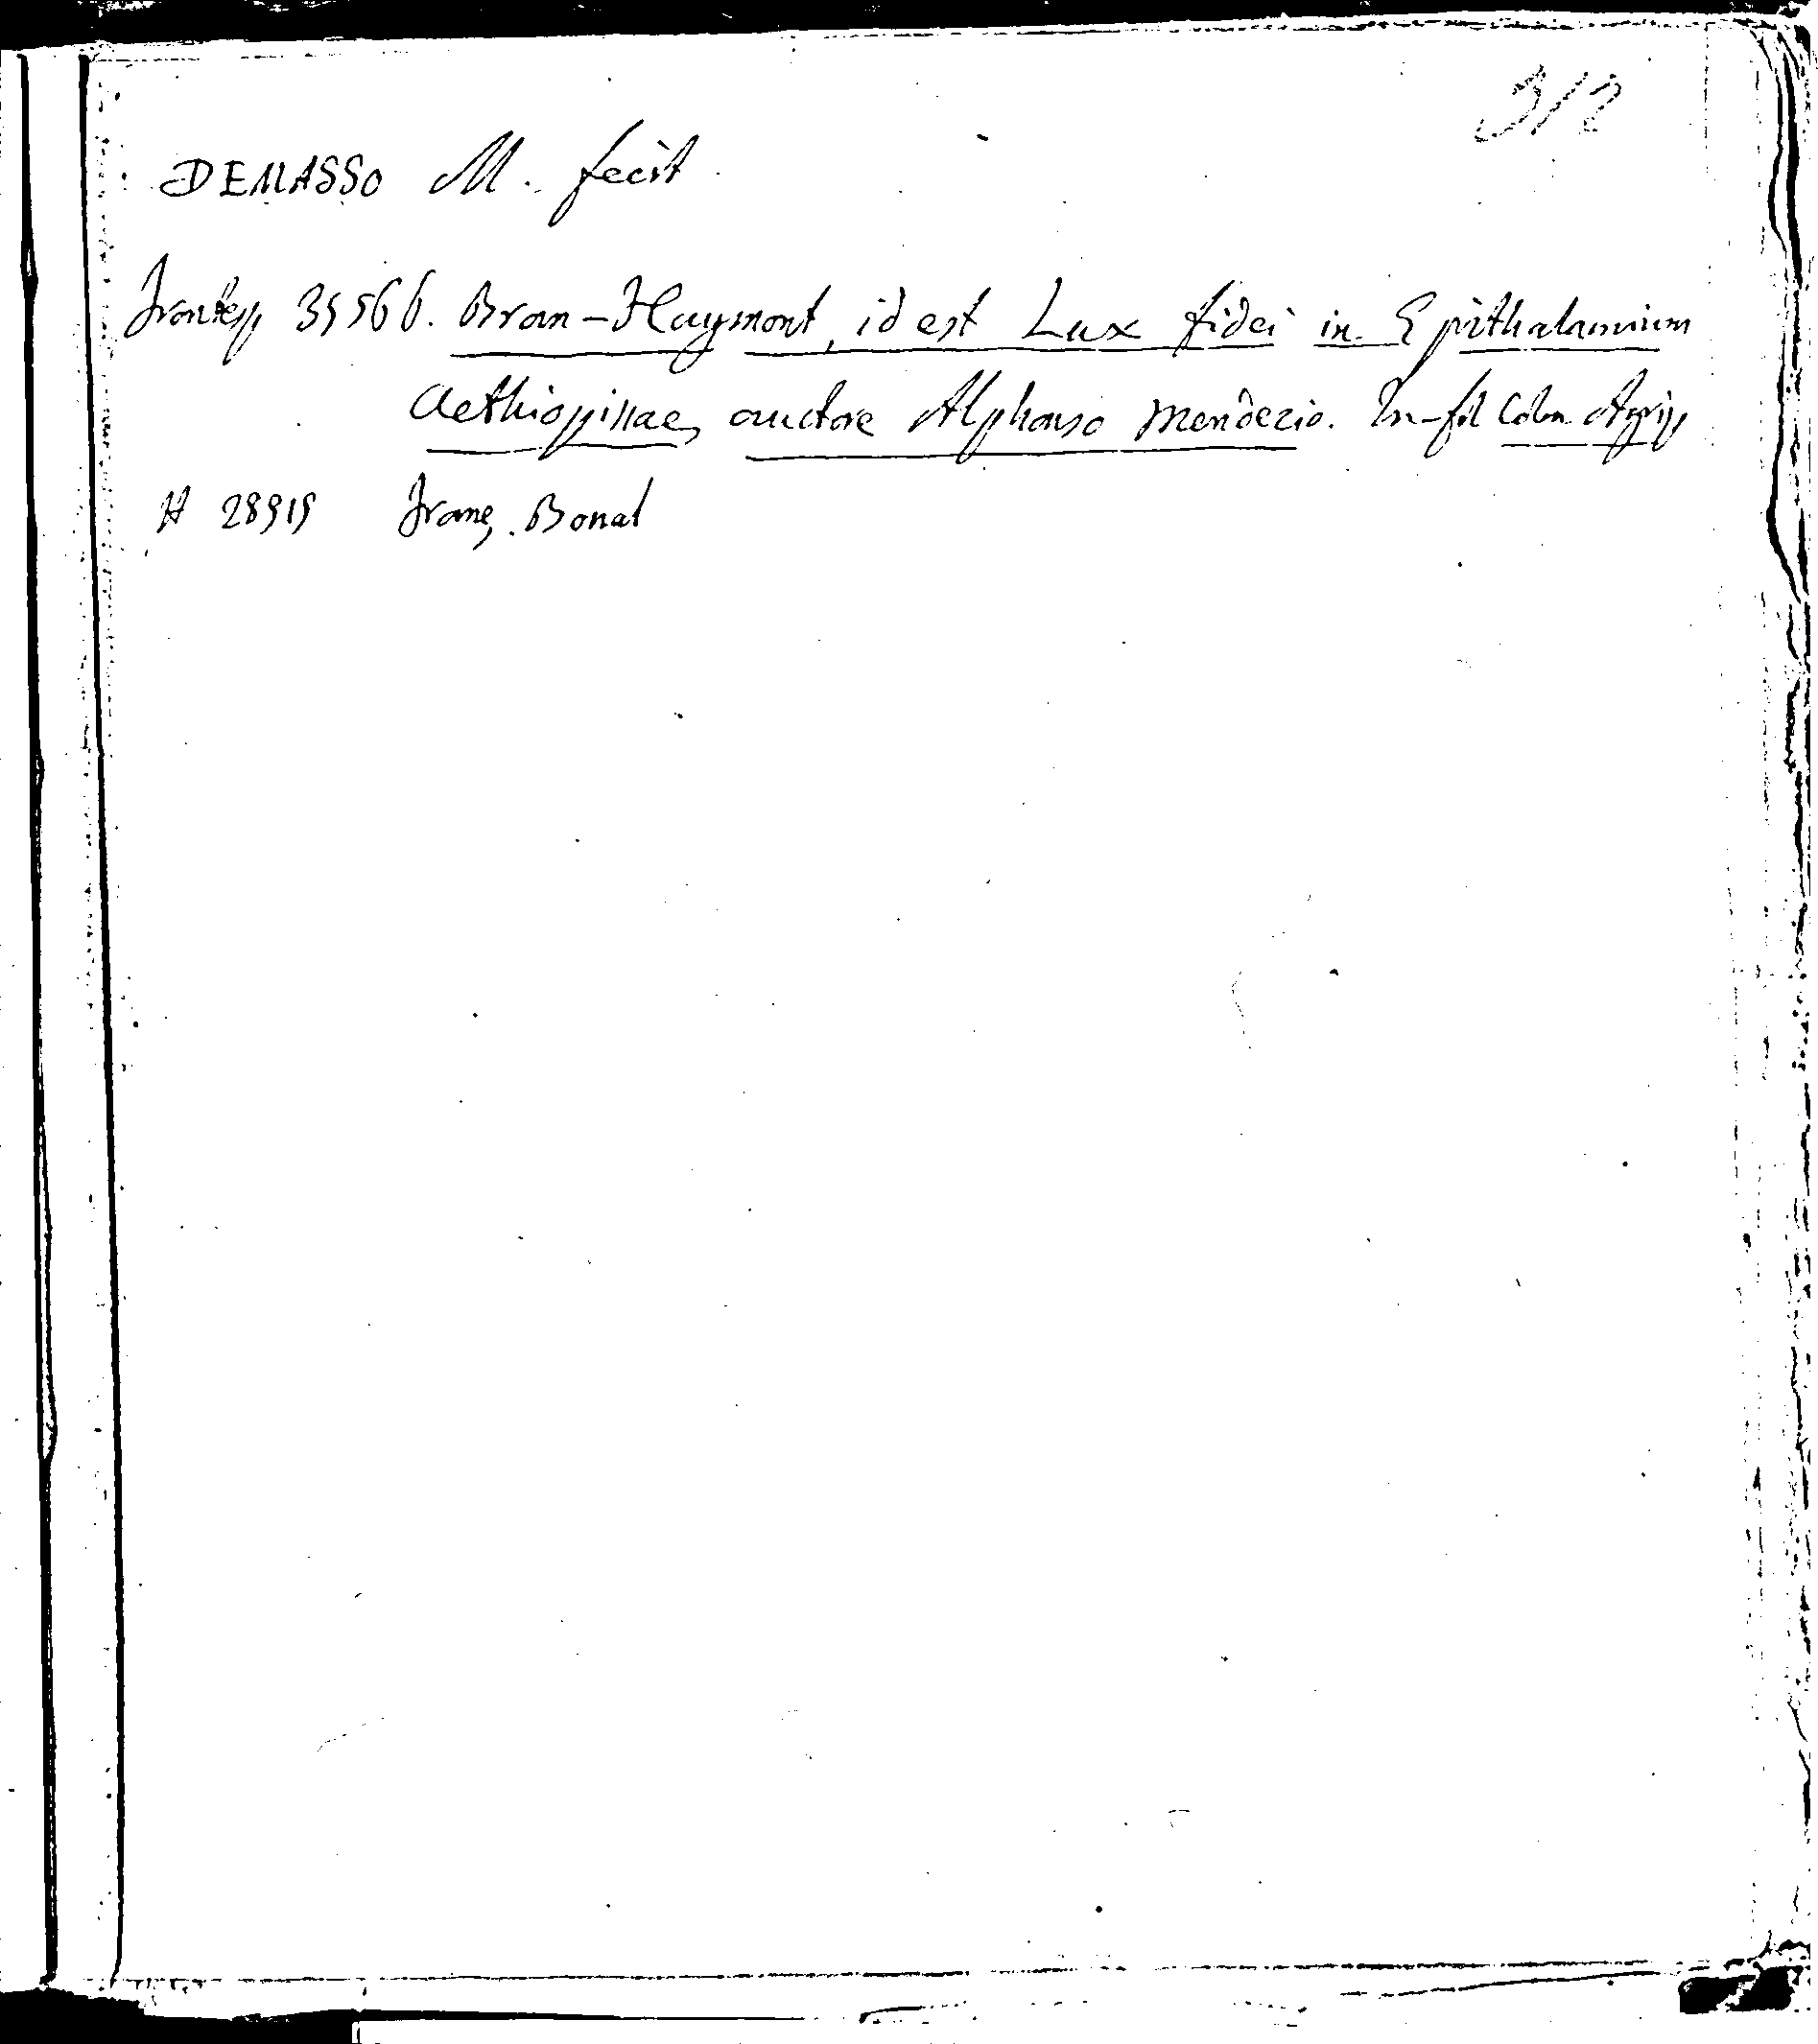 312
DEMASSO M. fecit
Frontesp 35566. Bran-Haymont, id est Lux fidei in Epithalamium
Aethiopissae, auctore Alphonso Mendezio. In-fol Colon Agripp
H 28919 Franç. Bonal